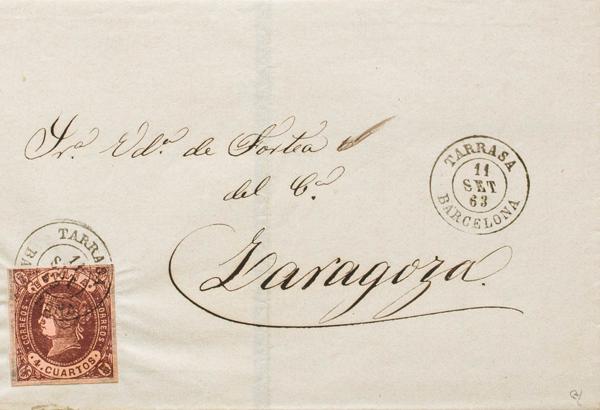 Sra. Vda. de Fortea
del Co.
Zaragoza.
TARRASA
11
SET
63
BARCELONA
TARRASA
11
CORREOS
CORREOS
4 CUARTOS